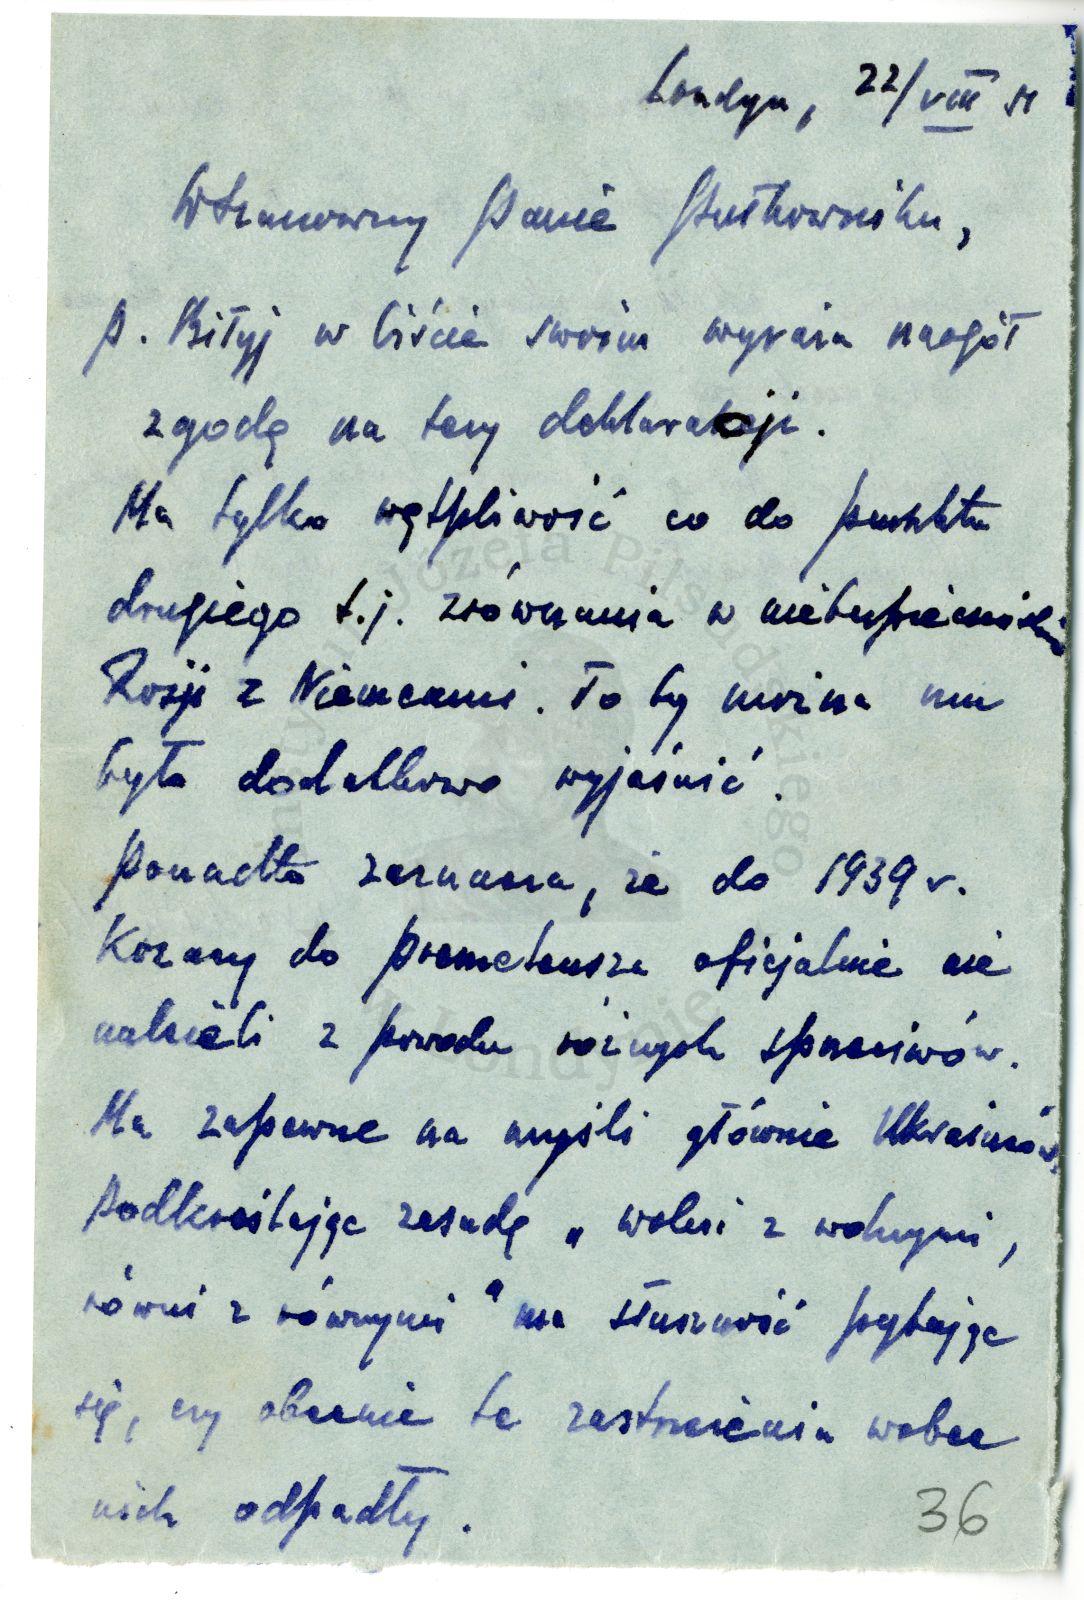 Londyn, 22/VIII 51
W Szanowny Panie Pułkowniku,
p. Biłyj w liście swoim wyraża naogół
zgodę na tezy deklaracji.
Ma tylko wątpliwość co do punktu
drugiego t.j. zrównania w niebezpieczności
Rosji z Niemcami. To by można mu
było dodatkowo wyjaśnić.
Ponadto zaznacza, że do 1939 r.
Kozacy do Prometeusza oficjalnie nie
należeli z powodu różnych sprzeciwów.
Ma zapewne na myśli głównie Ukraińców.
Podkreślając zasadę „wolni z wolnymi,
równi z równymi" ma słuszność pytając
się, czy obecnie te zastrzeżenia wobec
nich odpadły.
36
Instytut Józefa Piłsudskiego
w Londynie